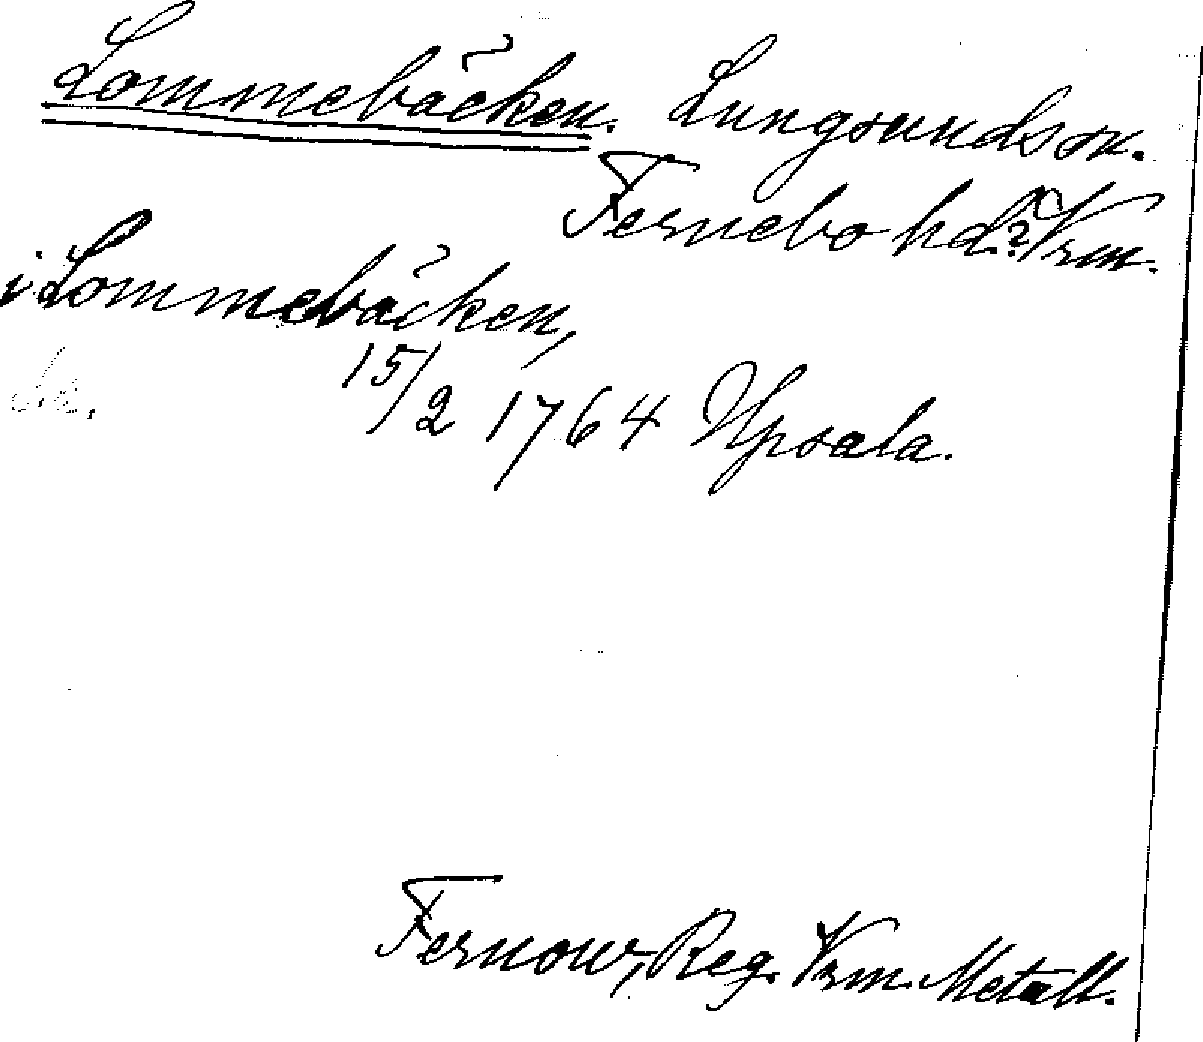 Lommebäcken. Lungsundssn.
Fernebo hd.? Vrm.
i Lommebäcken,
15/2 1764 Upsala.
Fernow, Reg. Vrm. Metall.